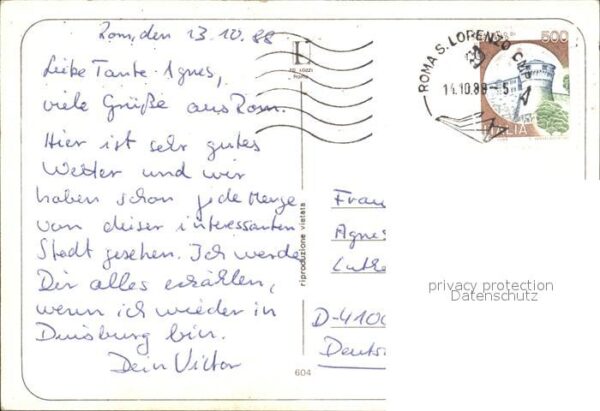 Rom, den 13.10.88
Liebe Tante Agnes,
viele Grüße aus Rom.
Hier ist sehr gutes
Wetter und wir
haben schon jede Menge
von dieser interessanten
Stadt gesehen. Ich werde
Dir alles erzählen,
wenn ich wieder in
Duisburg bin.
Dein Victor
L
riproduzione vietata
604
ROMA S. LORENZO CMP
14.10.88-5
500
ITALIA
Frau
Agnes
D-4100
Deuts
privacy protection
Datenschutz